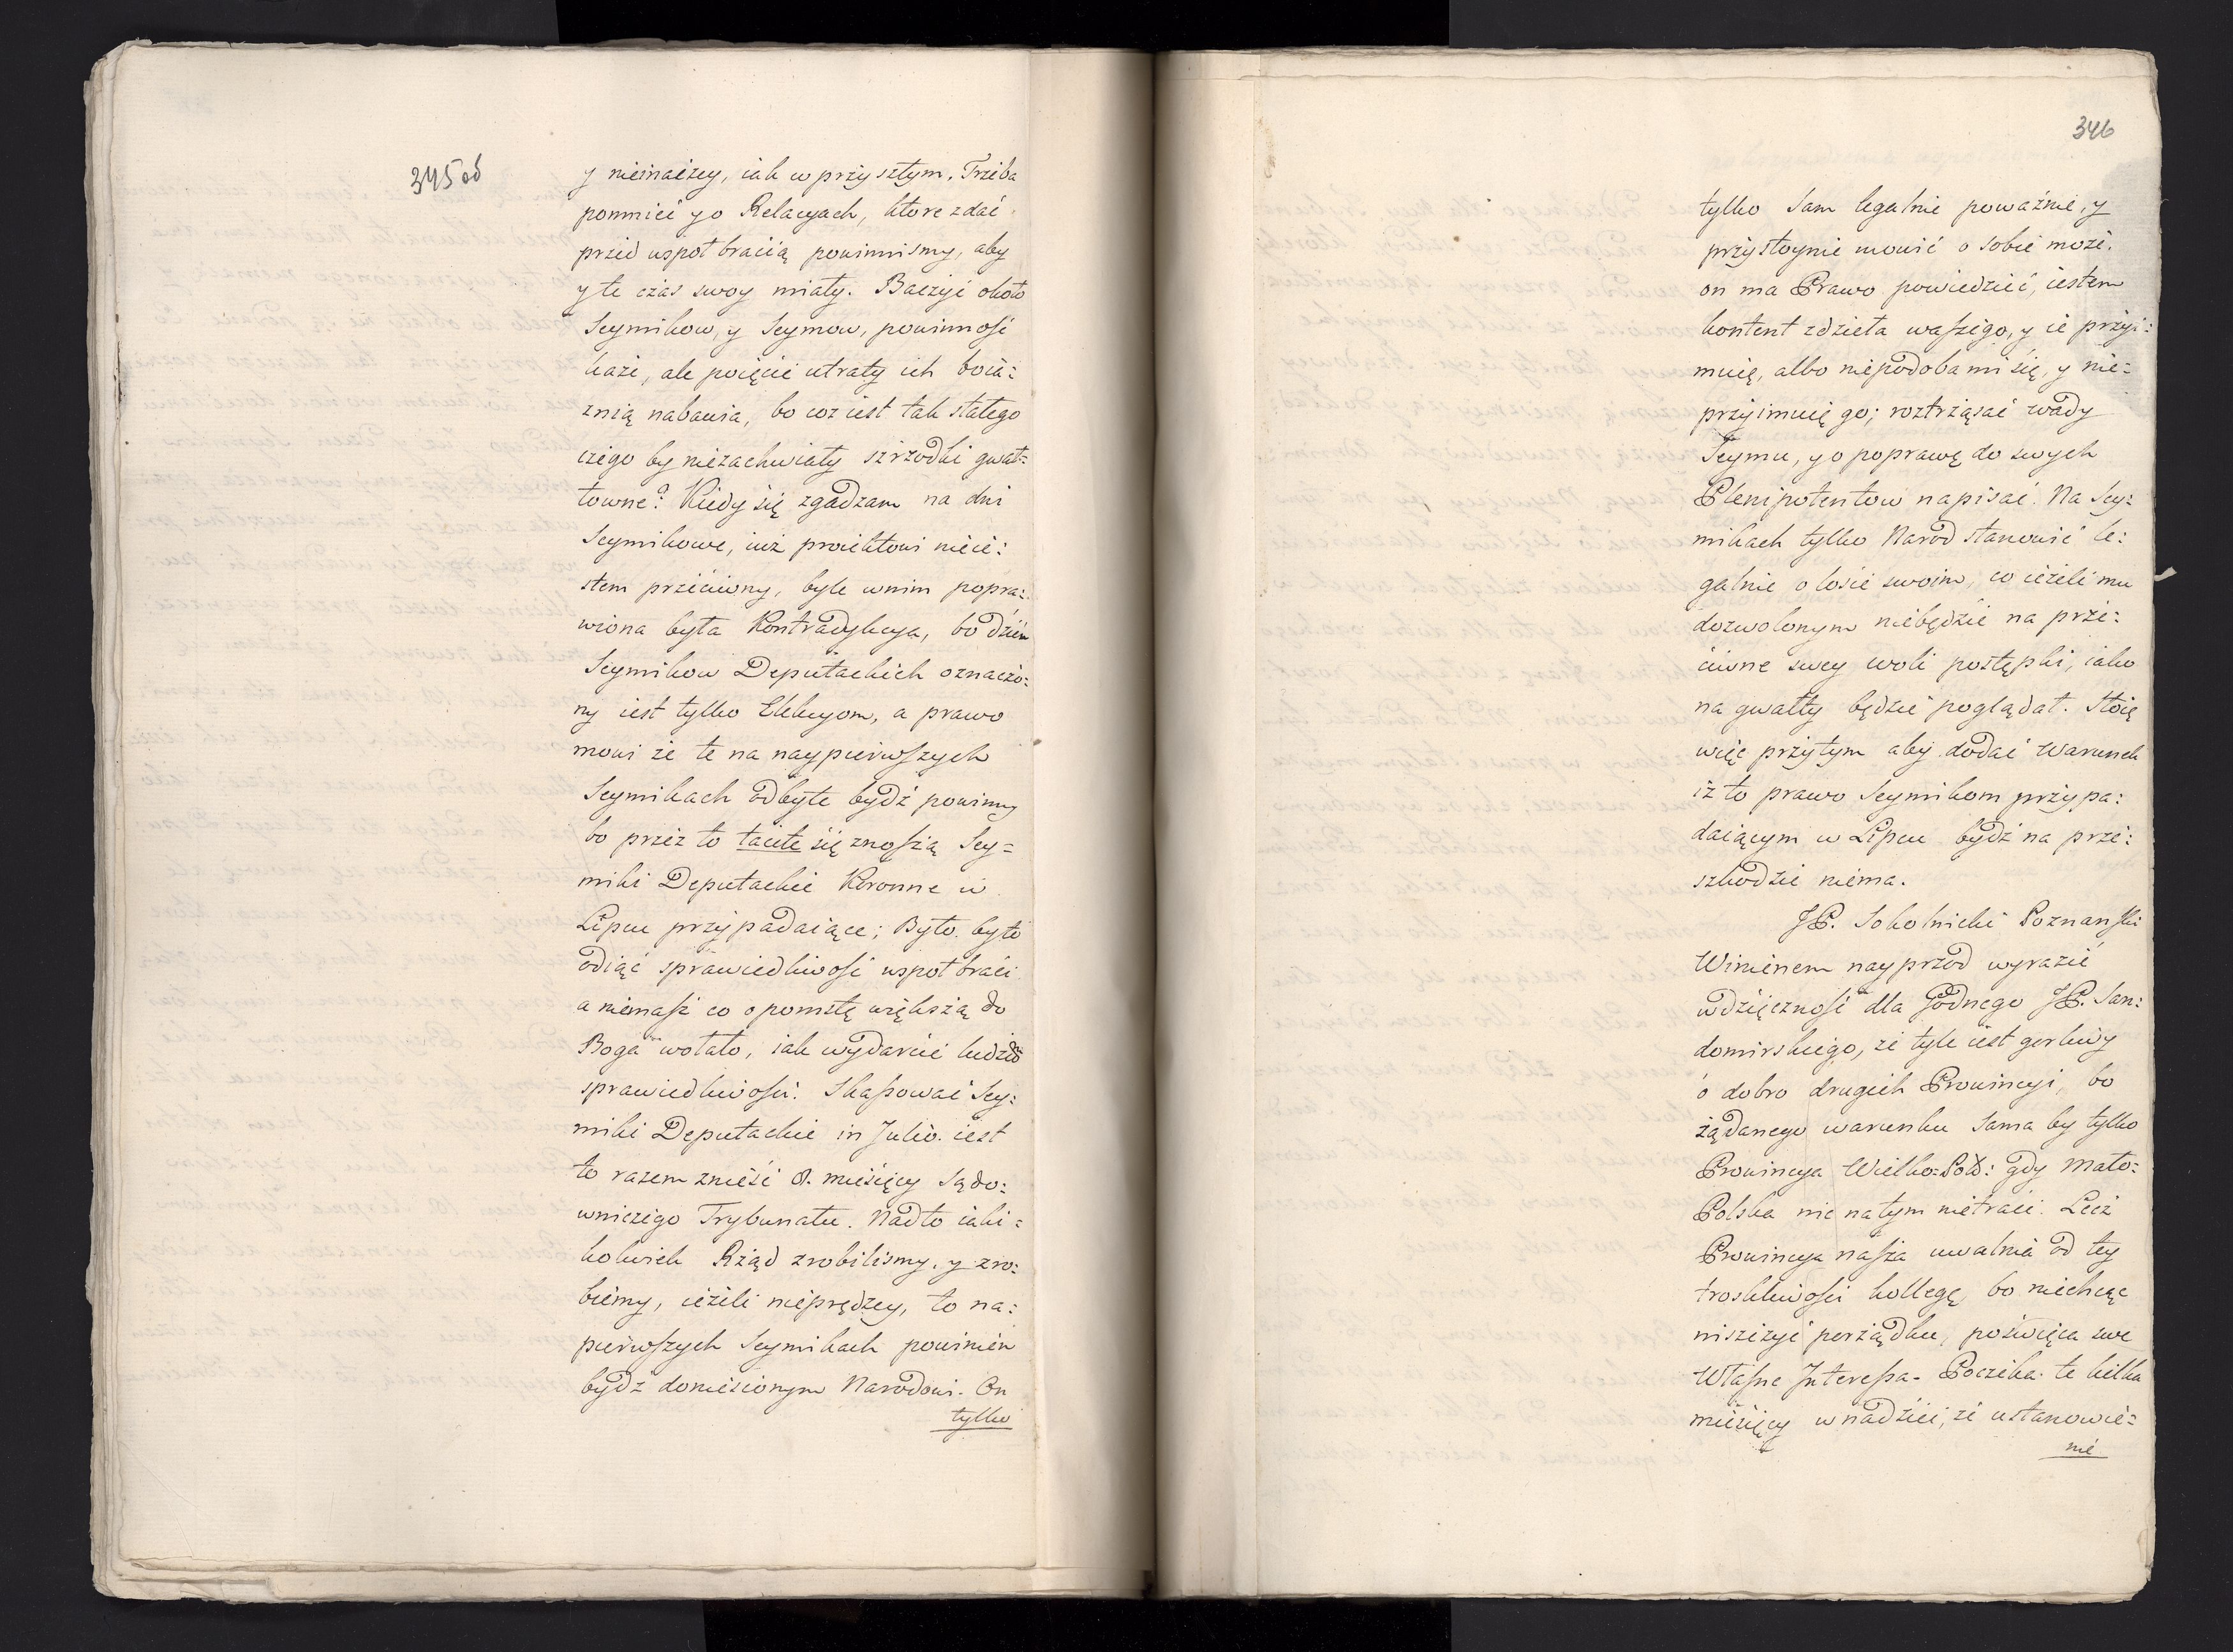 345 об
y nieinaiezey, iak w przysztym. Trzeba
pommieć y o Relacyach, ktore zdać
przed wspoł bracią powinnismy, aby
y te czas swoy miały. Baczyć około
Seymikow, y Seymow, powinność
każe, ale poięcie utraty ich boia:
znią nabawia, bo coż iest tak stałego
czego by niezachwiały szrzodki gwał=
towne? Kiedy się zgadzam na dni
Seymikowe, iuż proiektowi nieie:
stem przeciwny, byle wnim popra:
wiona była Kontradykcya, bo dzień
Seymikow Deputackich oznaczo:
ny iest tylko Elekcyom, a prawo
mowi że te na naypierwszych
Seymikach odbyte bydź powinny
bo przez to tacite się znoszą Sey=
miki Deputackie Koronne w
Lipcu przypadaiące; Było. by to
odiąć sprawiedliwość wspoł braci
a niemasz co o pomstę większą do
Boga wołało, iak wydarcie ludziom
sprawiedliwości. Skassować Sey:
miki Deputackie in Julio. iest
to razem znieść 8. miesięcy Sądo:
wniczego Trybunału. Nadto iaki=
kolwiek Rząd zrobilismy. y zro:
biemy, ieżeli nieprędzey, to na:
pierwszych Seymikach powinien
bydź doniesionym Narodowi. On
tylko
346
tylko Sam legalnie poważnie, y
przystoynie mowić o sobie może.
on ma Prawo powiedzieć, iestem
kontent zdzieła waszego, y ie przyi:
muię, albo niepodoba mi się, y nie=
przyimuię go; roztrząsać wady
Seymu, y o poprawę do swych
Plenipotentow napisać. Na Sey=
mikach tylko Narod stanowić le:
galnie o losie swoim, co ieżeli mu
dozwolonym niebędzie na prze:
ciwne swey woli postępki, iako
na gwałty będzie poglądał. Stoię
więc przytym aby dodać warunek
iż to prawo Seymikom przypa:
daiącym w Lipcu bydź na prze:
szkodzie niema.
JP. Sokolnicki Poznański
Winienem nayprzod wyrazić
wdzięczność dla Godnego JP. San:
domirskiego, że tyle iest gorliwy
o dobro drugich Prowincyi, bo
żądanego warunku Sama by tylko
Prowincya Wielko=Pol: gdy Mało=
Polska nic natym nietraci. Lecz
Prowincya nasza uwalnia od tey
troskliwości kollegę, bo niechcąc
niszczyć porządku, poświęca swe
Własne Interessa. Poczeka te kilka
miesięcy w nadziei, że ustanowie=
nie